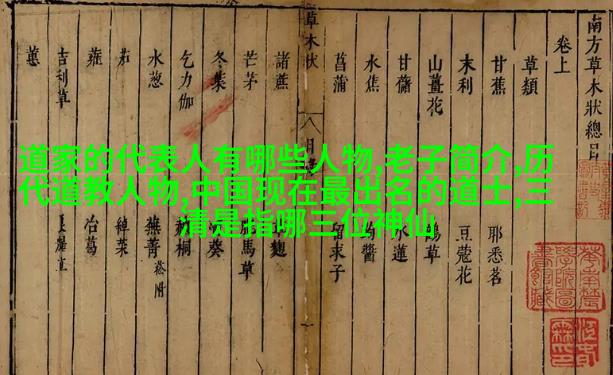 南方草木狀總目
卷上
草類
甘蕉 耶悉茗
末利 豆蔻花
山薑花 草
甘藷 水蓮
水蕉 醬
菖蒲 求子
草木狀
諸蔗 麴
芒茅 馬草
冬葉 葵
乞力伽 桐
水葱 蕪菁 菘附
茄 綽菜
蕹 冶葛
吉利草
蕙
道家的代表人有哪些人物,老子简介,历
代道教人物,中国现在最出名的道士,三
清是指哪三位神仙